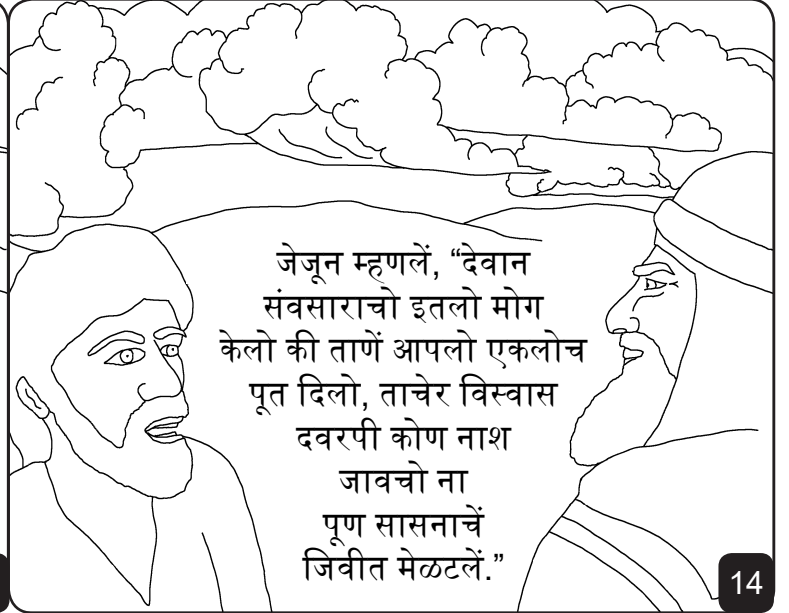 जेजून म्हणलें, “देवान
संवसाराचो इतलो मोग
केलो की ताणें आपलो एकलोच
पूत दिलो, ताचेर विस्वास
दवरपी कोण नाश
जावचो ना
पूण सासनाचें
जिवीत मेळटलें.”
14